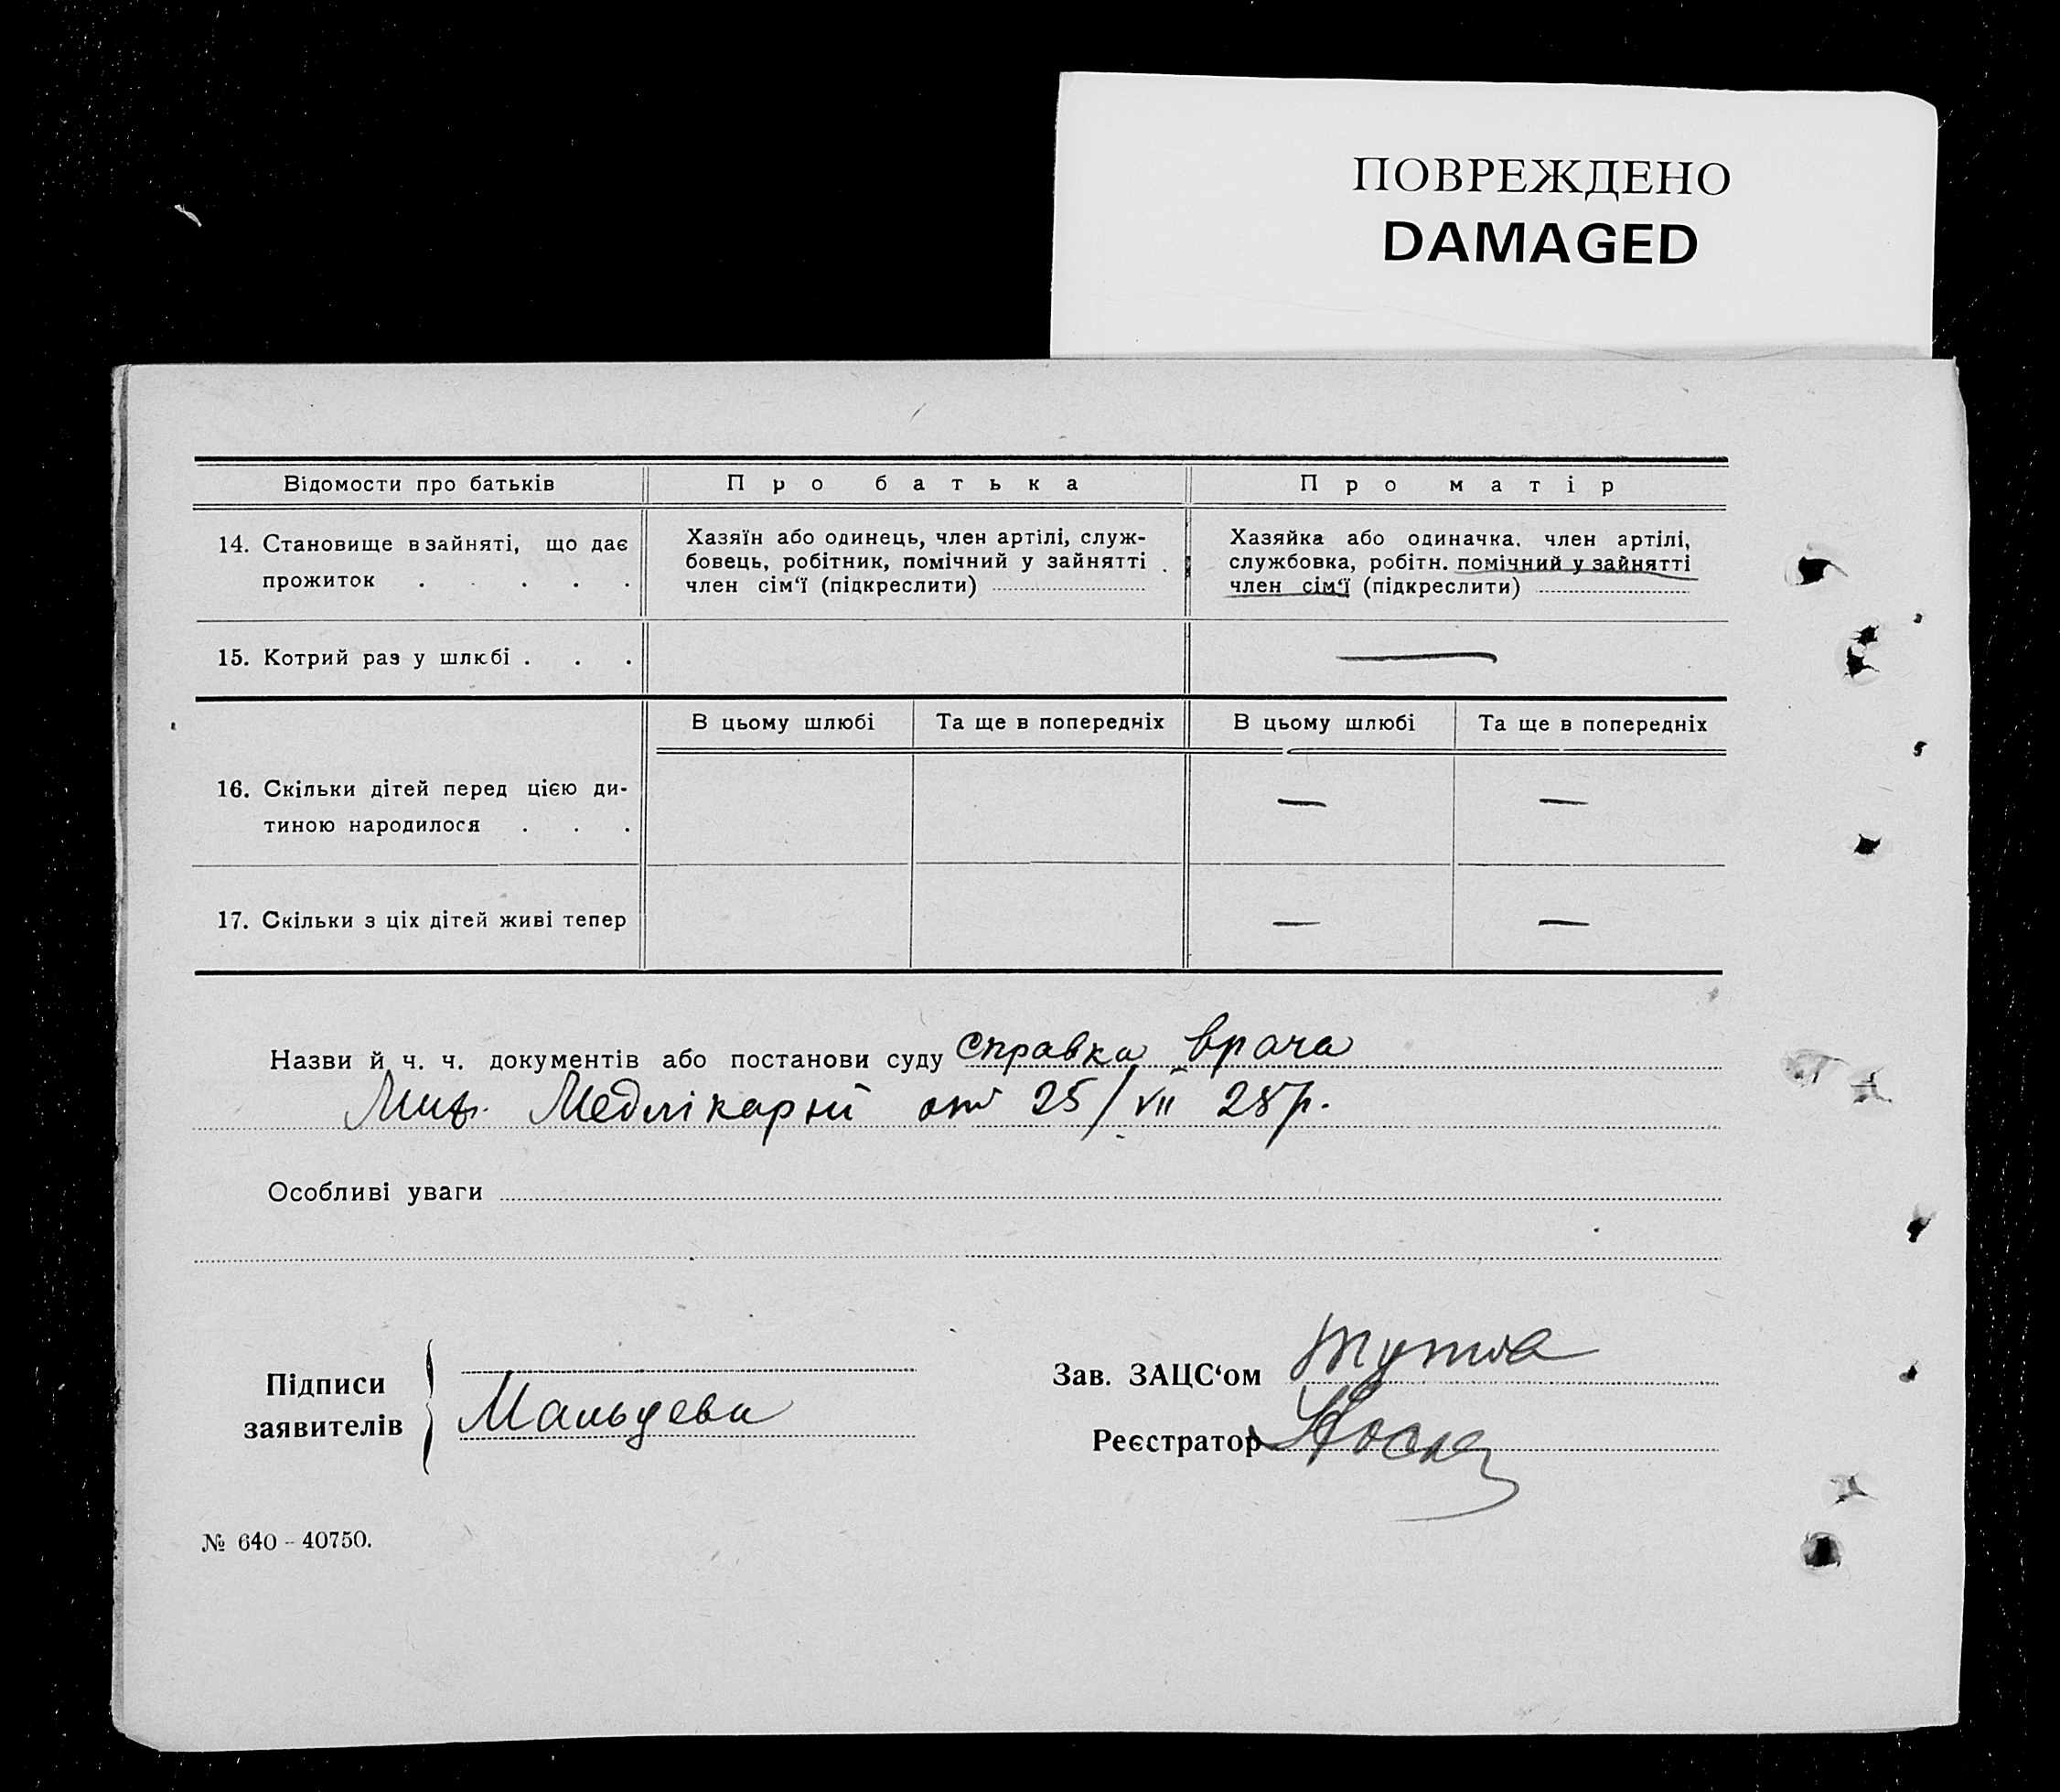 ПОВРЕЖДЕНО
DAMAGED
Відомости про батьків
Про батька
Про матір
14. Становище в зайняті, що дає
прожиток . . . . .
Хазяїн або одинець, член артілі, служ-
бовець, робітник, помічний у зайнятті
член сім‘ї (підкреслити)
Хазяйка або одиначка, член артілі,
службовка, робітн. помічний у зайнятті
член сім‘ї (підкреслити)
15. Котрий раз у шлюбі . . .
—
В цьому шлюбі
Та ще в попередніх
В цьому шлюбі
Та ще в попередніх
16. Скільки дітей перед цією ди-
тиною народилося . . .
— —
17. Скільки з ціх дітей живі тепер
— —
Назви й ч. ч. документів або постанови суду справка врача
Медлікарні от 25/VII 28р.
Особливі уваги
Підписи
заявителів
Мальцева
Зав. ЗАЦС‘ом
Реєстратор
№ 640 - 40750.